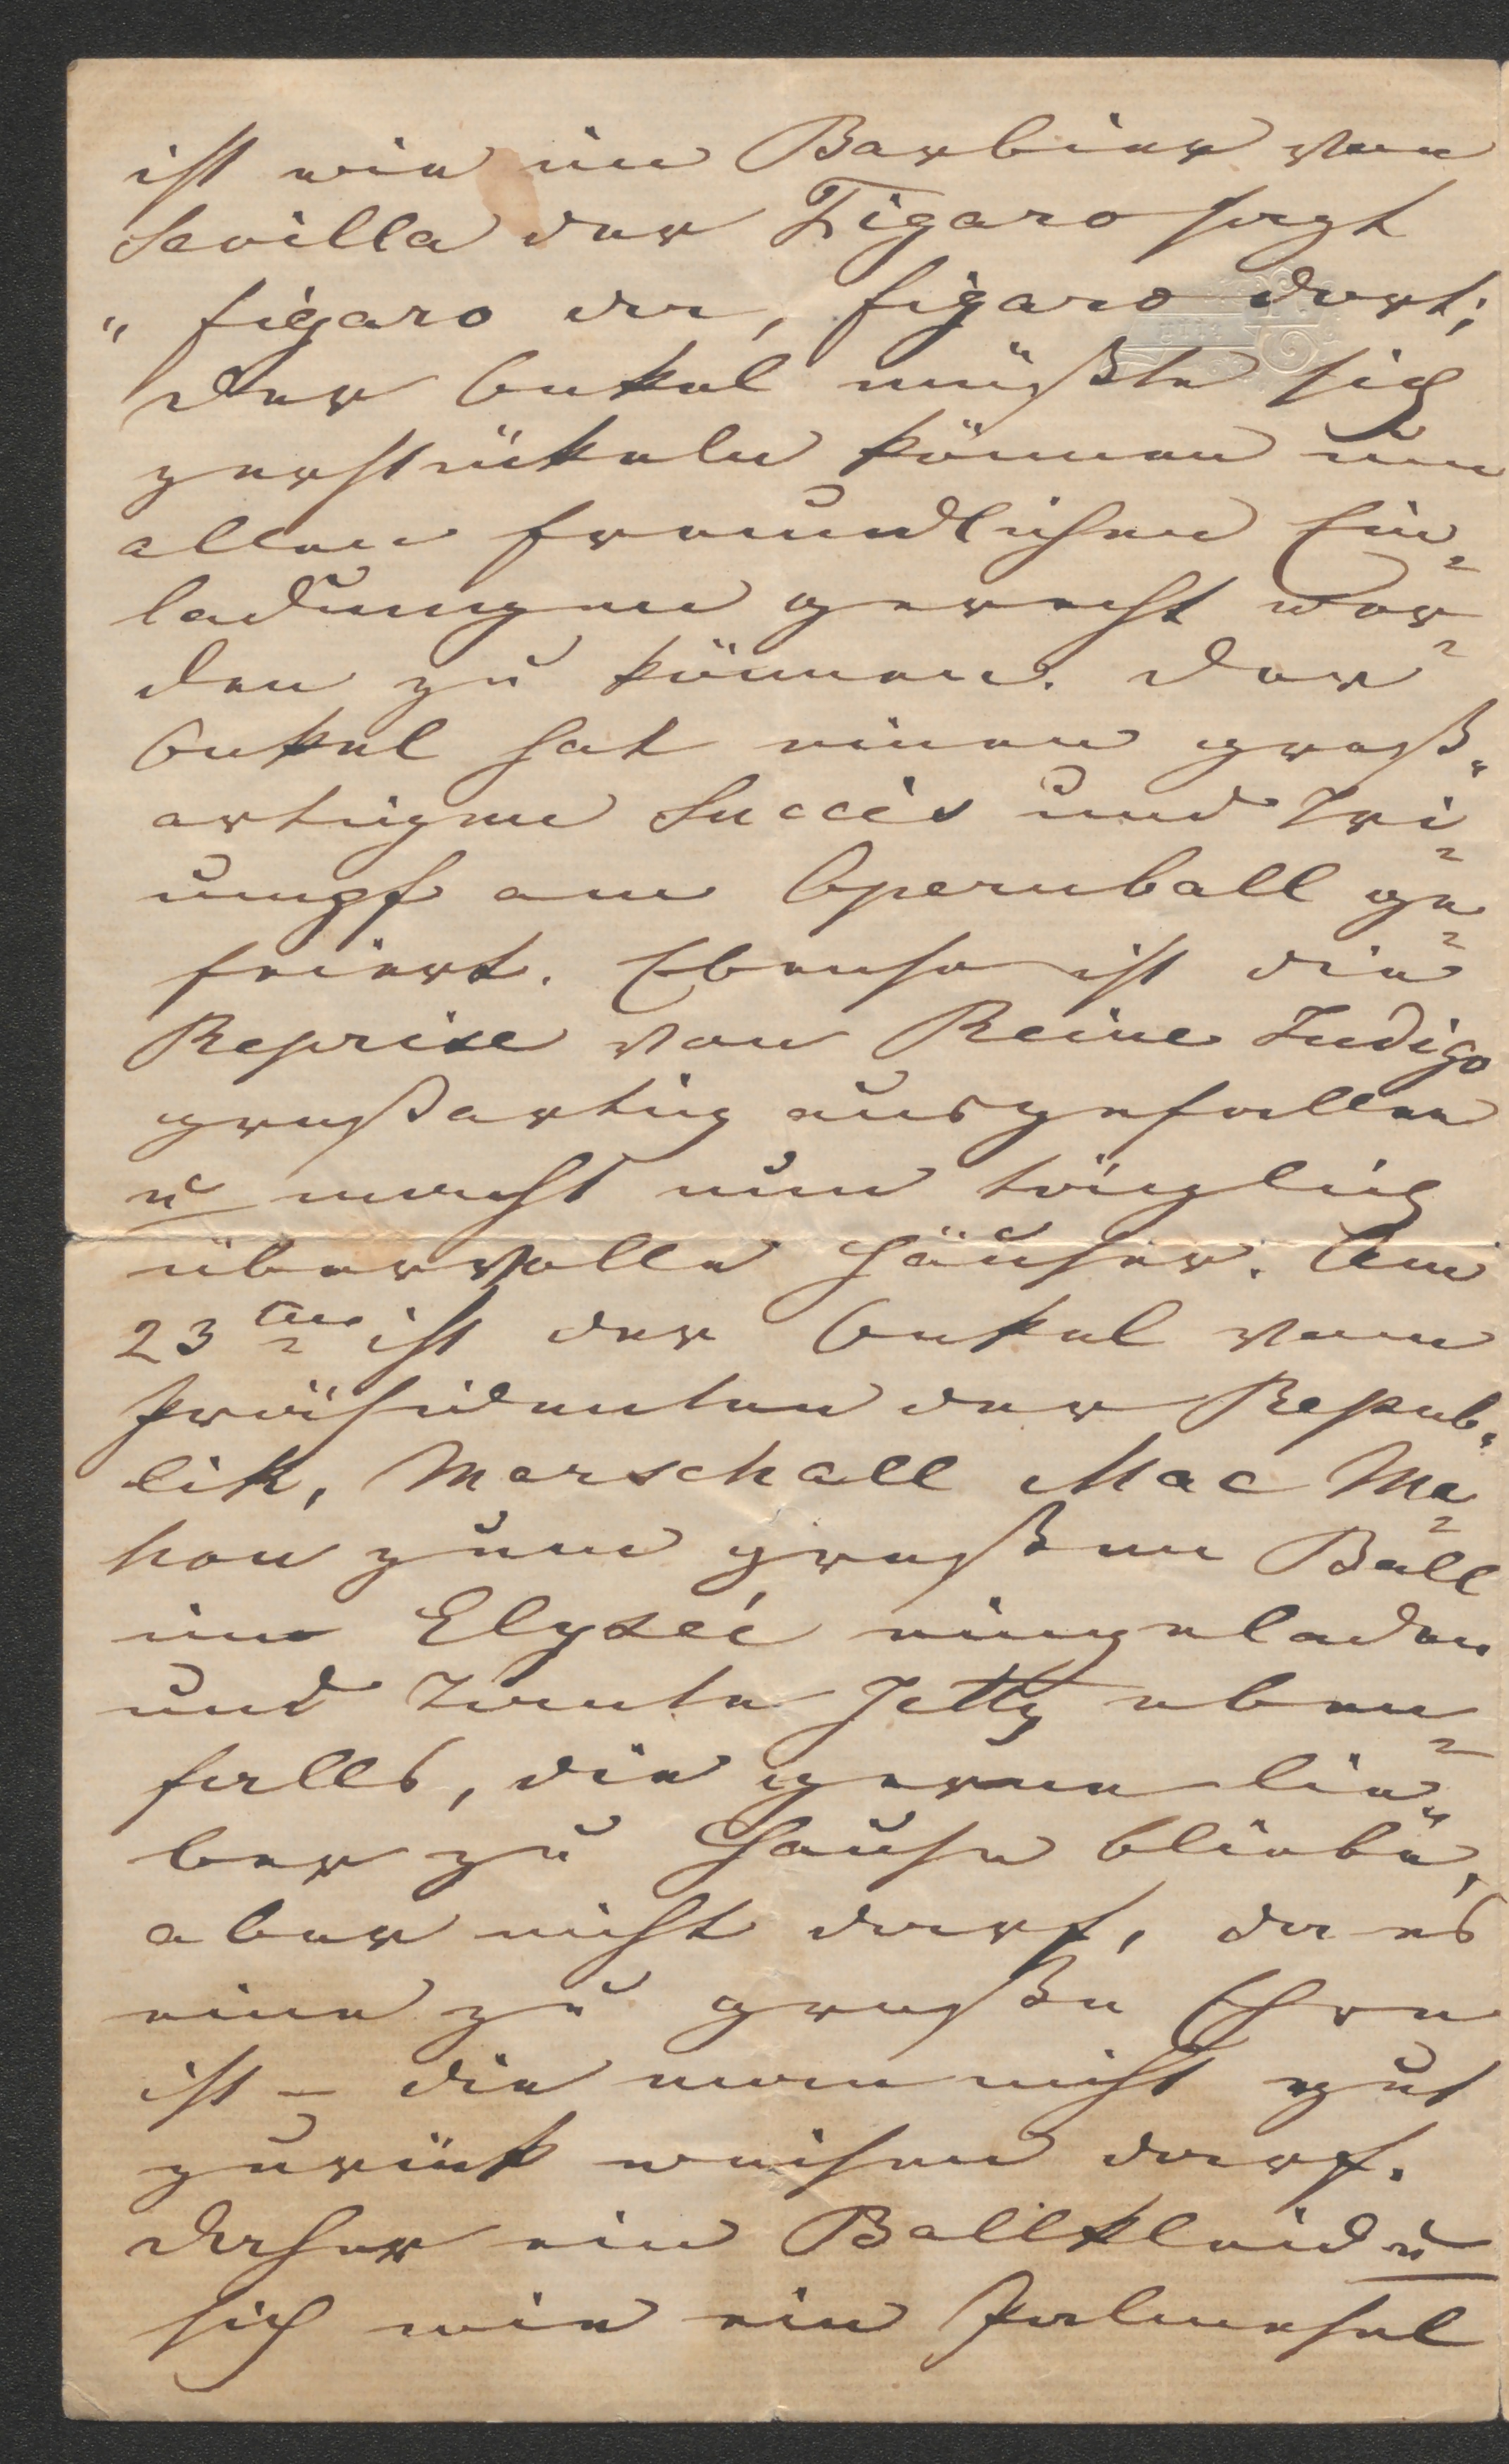 ist wie im Barbier von
Sevilla der Figaro sagt
„ figaro da, figaro dort;
der Onkel müßte sich
zerstükeln können um
allen freundlichen Ein=
ladungen gerecht wer=
den zu können. Der
Onkel hat einen groß„
artigen Succès und Tri=
umpf am Opernball ge=
feiert. Ebenso ist die
Reprise von Reine Indigo
großartig ausgefallen
u macht nun täglich
übervolle Häuser. Am
23ten ist der Onkel vom
Präsidenten der Repub„
lik, Marschall Mac Ma=
hon zum großen Ball
im Elyseé eingeladen
und Tante Jetty eben=
falls, die gerne lie„
ber zu Hause bliebe,
aber nicht darf, da es
eine zu große Ehre
ist – die man nicht gut
zurük weisen darf.
Daher ein Ballkleid u
sich wie ein Palmesel